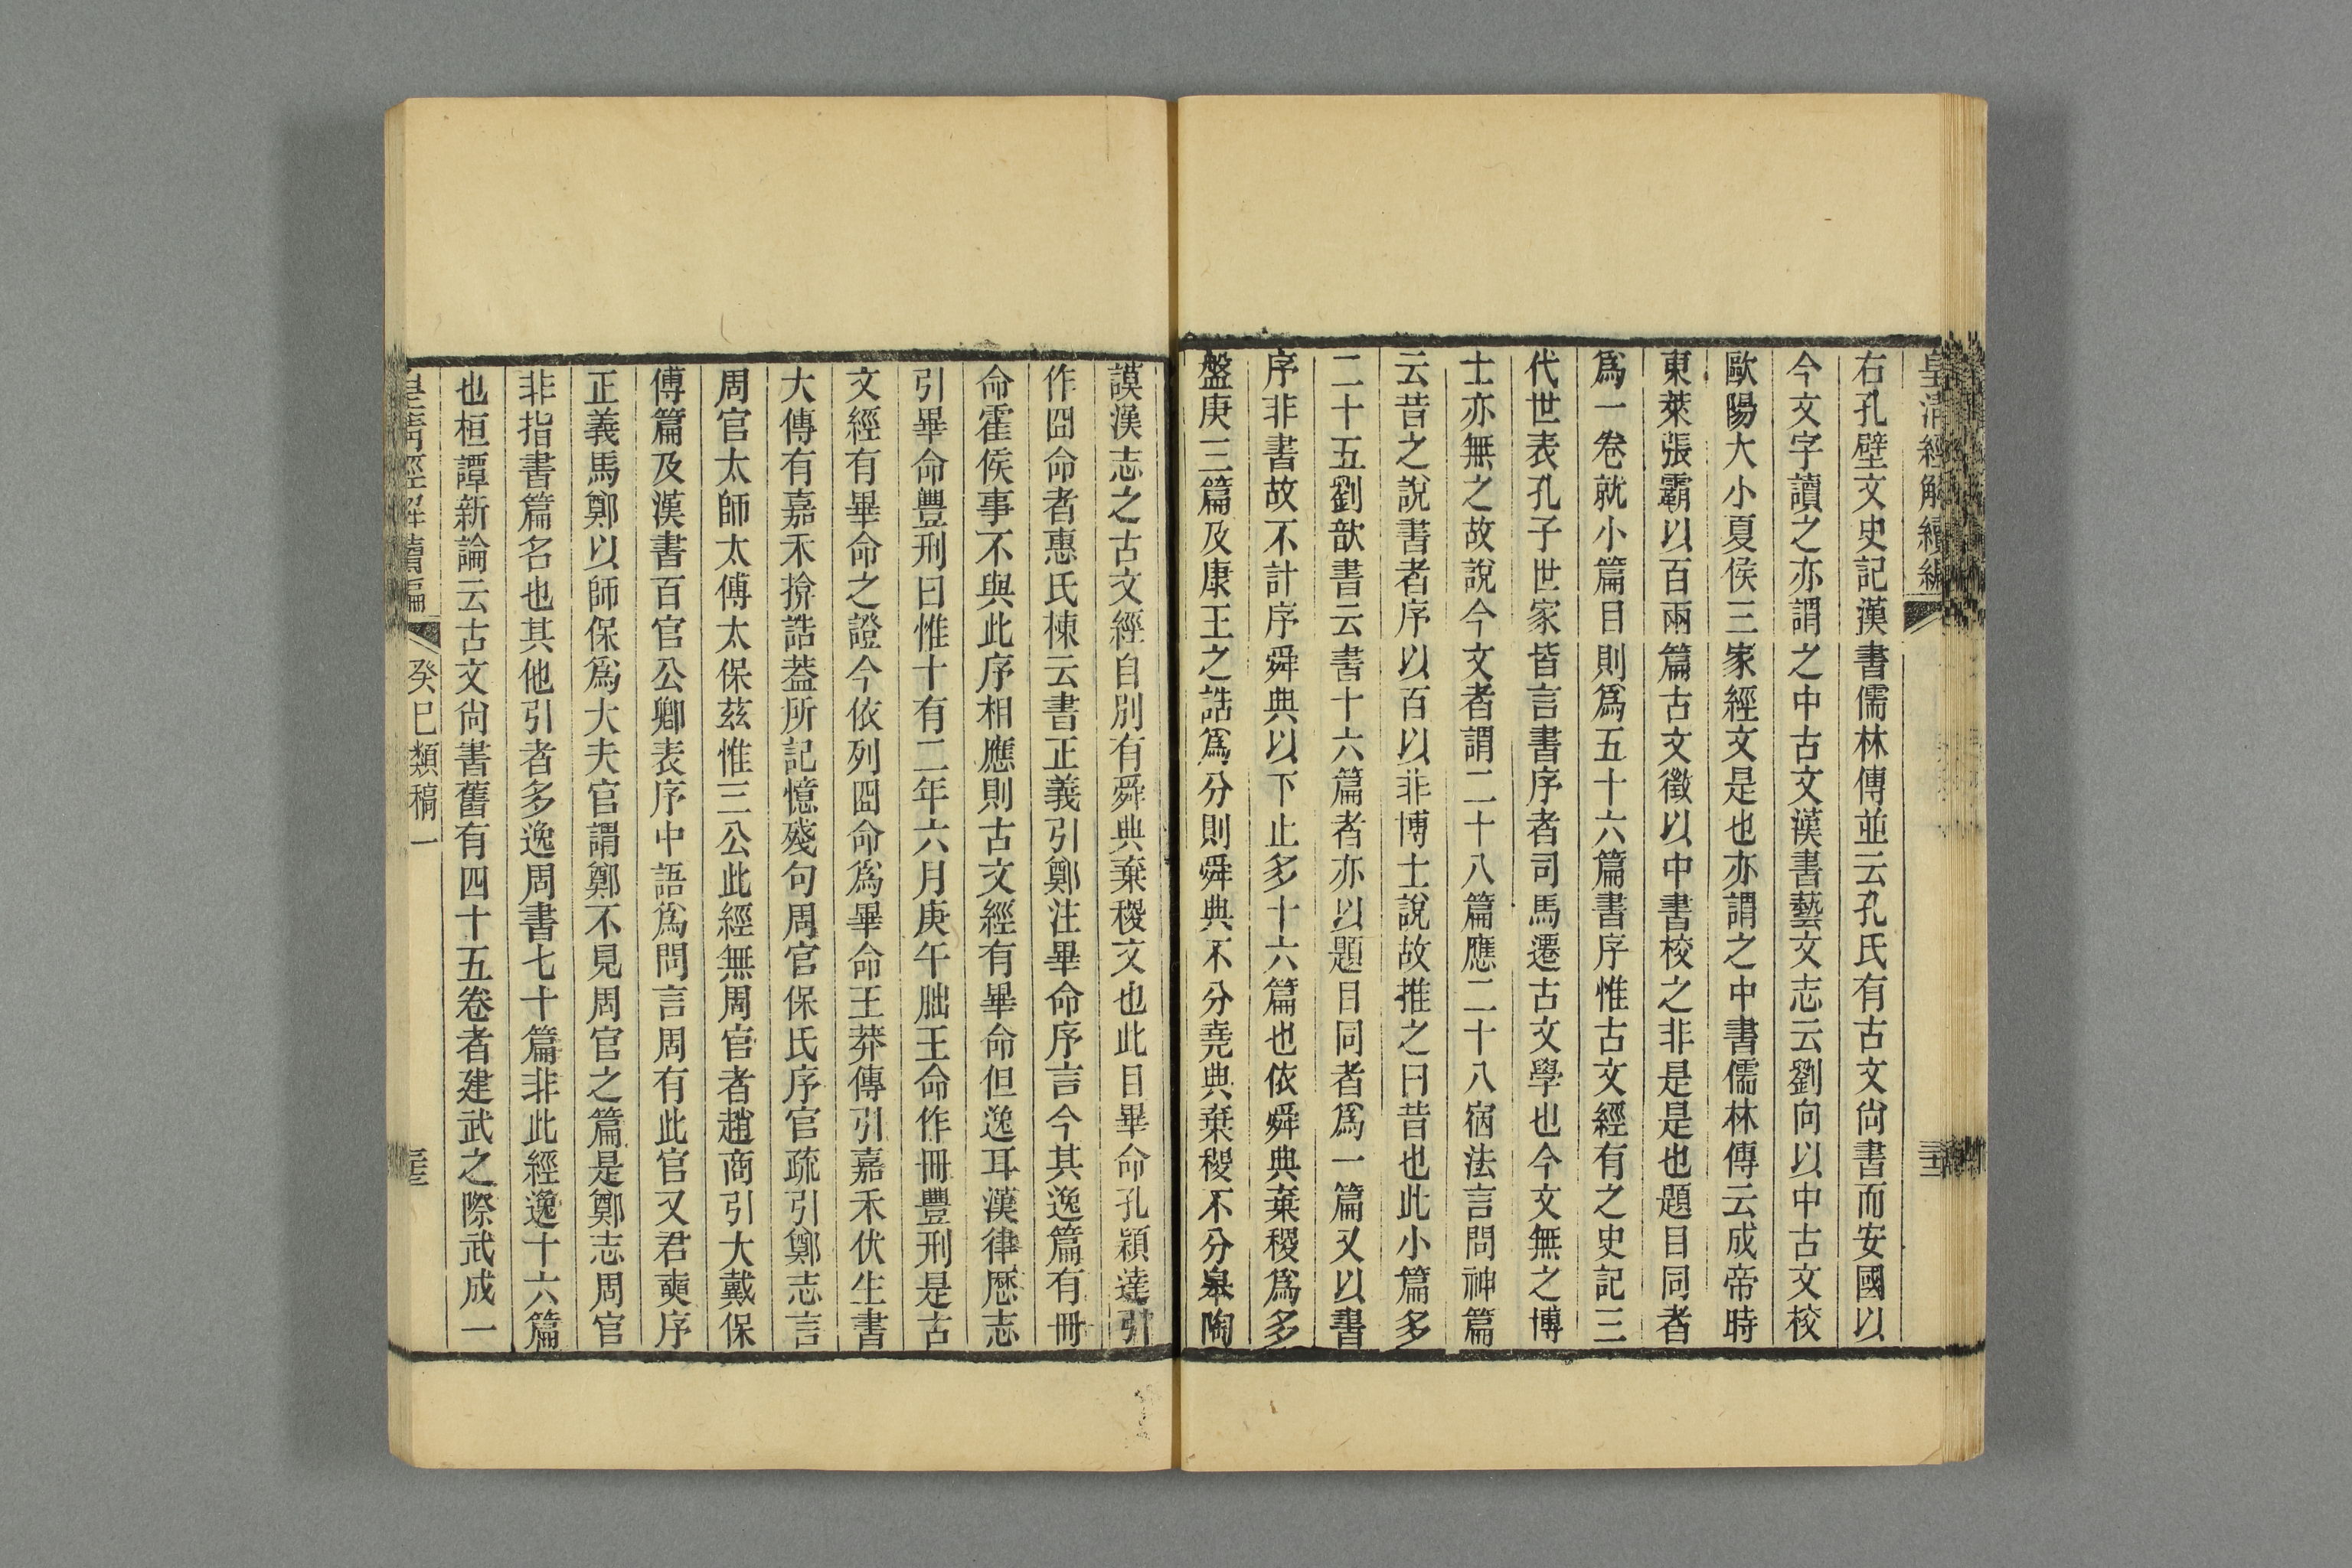 皇清經解續編
右孔壁文史記漢書儒林傳並云孔氏有古文尙書而安國以
今文字讀之亦謂之中古文漢書藝文志云劉向以中古文校
歐陽大小夏侯三家經文是也亦謂之中書儒林傳云成帝時
東萊張霸以百兩篇古文徵以中書校之非是是也題目同者
爲一卷就小篇目則爲五十六篇書序惟古文經有之史記三
代世表孔子世家皆言書序者司馬遷古文學也今文無之博
士亦無之故說今文者謂二十八篇應二十八宿法言問神篇
云昔之說書者序以百以非博士說故推之曰昔也此小篇多
二十五劉歆書云書十六篇者亦以題目同者爲一篇又以書
序非書故不計序舜典以下止多十六篇也依舜典棄稷爲多
盤庚三篇及康王之誥爲分則舜典不分堯典棄稷不分皋陶
謨漢志之古文經自別有舜典棄稷文也此目畢命孔穎達引
作囧命者惠氏棟云書正義引鄭注畢命序言今其逸篇有冊
命霍侯事不與此序相應則古文經有畢命但逸耳漢律厯志
引畢命豐刑曰惟十有二年六月庚午朏王命作冊豐刑是古
文經有畢命之證今依列囧命爲畢命王莽傳引嘉禾伏生書
大傳有嘉禾揜誥蓋所記憶殘句周官保氏序官疏引鄭志言
周官太師太傅太保茲惟三公此經無周官者趙商引大戴保
傅篇及漢書百官公卿表序中語爲問言周有此官又君奭序
正義馬鄭以師保爲大夫官謂鄭不見周官之篇是鄭志周官
非指書篇名也其他引者多逸周書七十篇非此經逸十六篇
也桓譚新論云古文尙書舊有四十五卷者建武之際武成一
皇清經解續編 癸巳類稿一